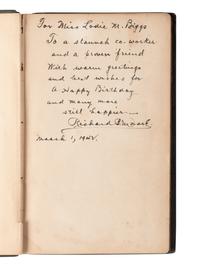 For Miss Lodie M. Biggs
To a staunch co-worker
and a proven friend
With warm greetings
and best wishes for
A Happy Birthday
and many more
still happier —
Richard
March 1, 1942.